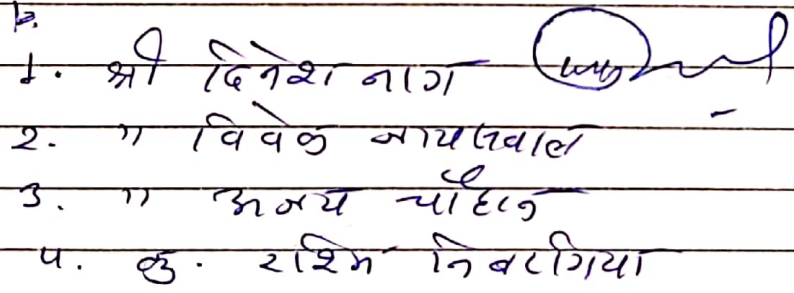 1. श्री दिनेश नाग
2. " विवेक जायसवाल
3. " अजय चौहान
4. कु. रश्मि